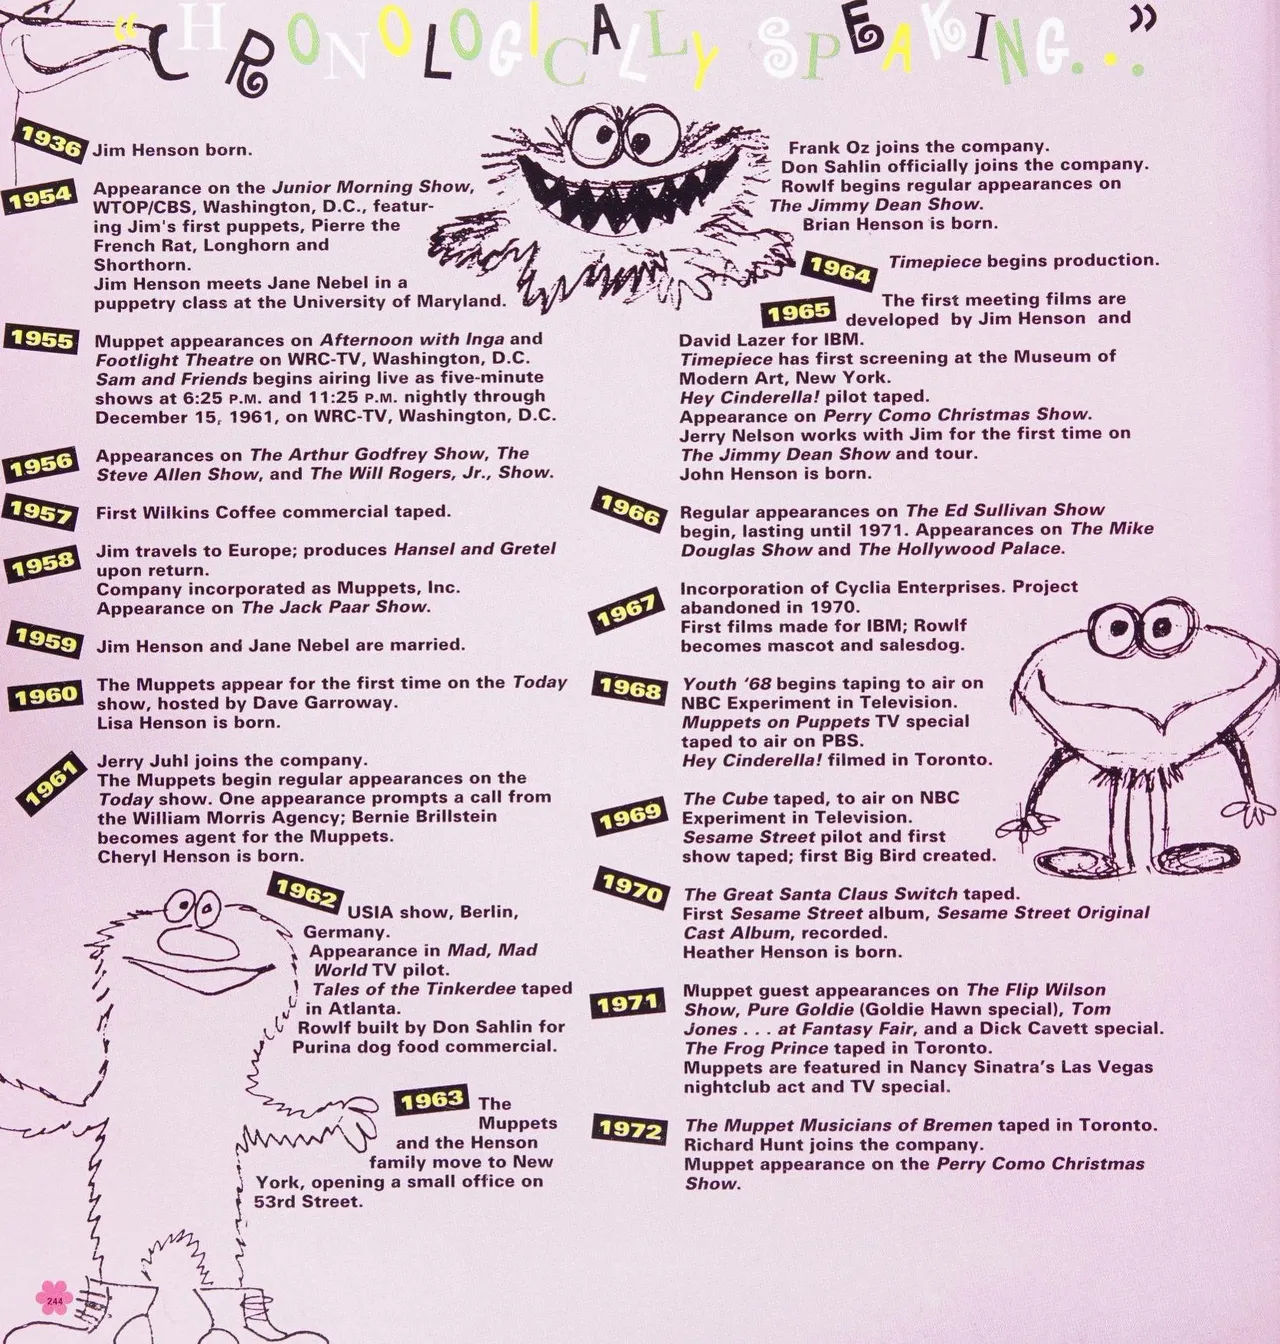 “CHRONOLOGICALLY SPEAKING...”
1936
Jim Henson born.
1954
Appearance on the Junior Morning Show,
WTOP/CBS, Washington, D.C., featur-
ing Jim's first puppets, Pierre the
French Rat, Longhorn and
Shorthorn.
Jim Henson meets Jane Nebel in a
puppetry class at the University of Maryland.
1955
Muppet appearances on Afternoon with Inga and
Footlight Theatre on WRC-TV, Washington, D.C.
Sam and Friends begins airing live as five-minute
shows at 6:25 P.M. and 11:25 P.M. nightly through
December 15, 1961, on WRC-TV, Washington, D.C.
1956
Appearances on The Arthur Godfrey Show, The
Steve Allen Show, and The Will Rogers, Jr., Show.
1957
First Wilkins Coffee commercial taped.
1958
Jim travels to Europe; produces Hansel and Gretel
upon return.
Company incorporated as Muppets, Inc.
Appearance on The Jack Paar Show.
1959
Jim Henson and Jane Nebel are married.
1960
The Muppets appear for the first time on the Today
show, hosted by Dave Garroway.
Lisa Henson is born.
1961
Jerry Juhl joins the company.
The Muppets begin regular appearances on the
Today show. One appearance prompts a call from
the William Morris Agency; Bernie Brillstein
becomes agent for the Muppets.
Cheryl Henson is born.
1962
USIA show, Berlin,
Germany.
Appearance in Mad, Mad
World TV pilot.
Tales of the Tinkerdee taped
in Atlanta.
Rowlf built by Don Sahlin for
Purina dog food commercial.
1963
The
Muppets
and the Henson
family move to New
York, opening a small office on
53rd Street.
Frank Oz joins the company.
Don Sahlin officially joins the company.
Rowlf begins regular appearances on
The Jimmy Dean Show.
Brian Henson is born.
1964
Timepiece begins production.
1965
The first meeting films are
developed by Jim Henson and
David Lazer for IBM.
Timepiece has first screening at the Museum of
Modern Art, New York.
Hey Cinderella! pilot taped.
Appearance on Perry Como Christmas Show.
Jerry Nelson works with Jim for the first time on
The Jimmy Dean Show and tour.
John Henson is born.
1966
Regular appearances on The Ed Sullivan Show
begin, lasting until 1971. Appearances on The Mike
Douglas Show and The Hollywood Palace.
1967
Incorporation of Cyclia Enterprises. Project
abandoned in 1970.
First films made for IBM; Rowlf
becomes mascot and salesdog.
1968
Youth ‘68 begins taping to air on
NBC Experiment in Television.
Muppets on Puppets TV special
taped to air on PBS.
Hey Cinderella! filmed in Toronto.
1969
The Cube taped, to air on NBC
Experiment in Television.
Sesame Street pilot and first
show taped; first Big Bird created.
1970
The Great Santa Claus Switch taped.
First Sesame Street album, Sesame Street Original
Cast Album, recorded.
Heather Henson is born.
1971
Muppet guest appearances on The Flip Wilson
Show, Pure Goldie (Goldie Hawn special), Tom
Jones . . . at Fantasy Fair, and a Dick Cavett special.
The Frog Prince taped in Toronto.
Muppets are featured in Nancy Sinatra’s Las Vegas
nightclub act and TV special.
1972
The Muppet Musicians of Bremen taped in Toronto.
Richard Hunt joins the company.
Muppet appearance on the Perry Como Christmas
Show.
244